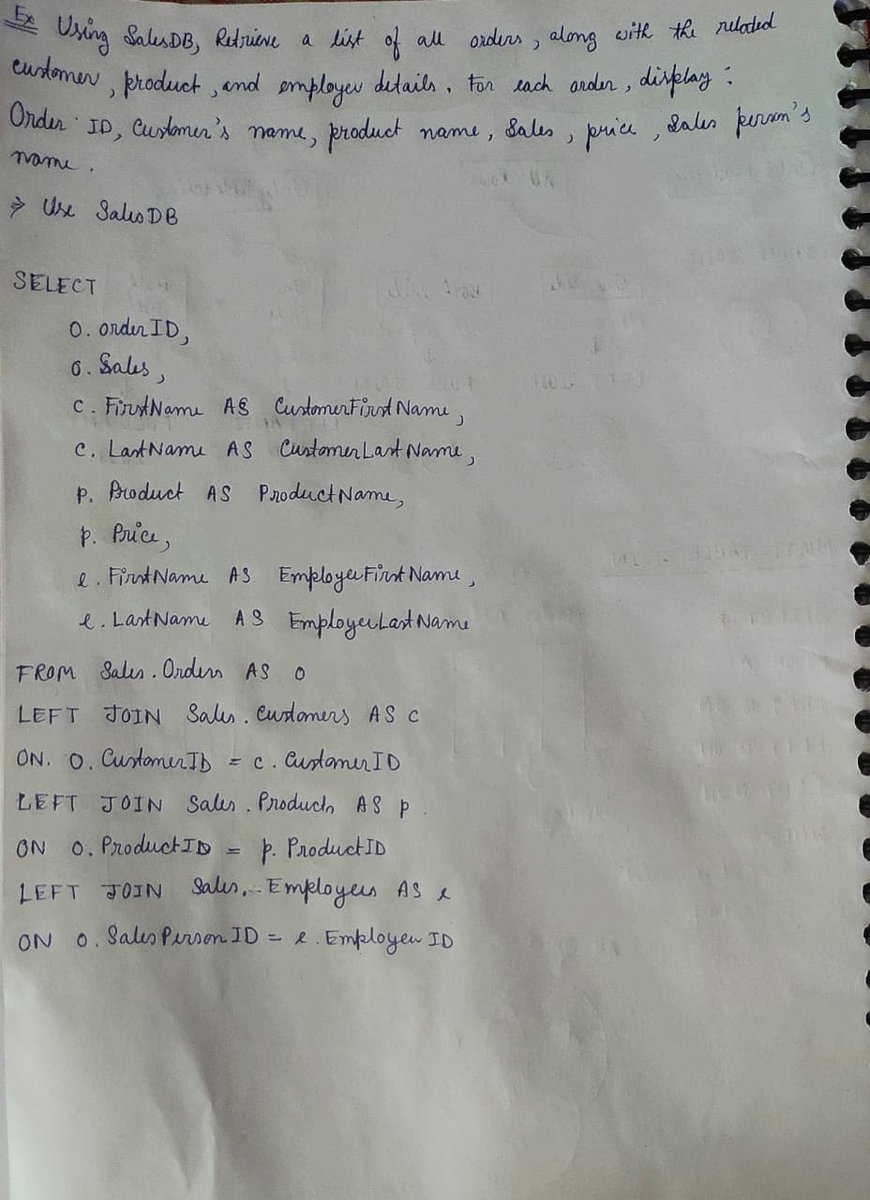 Ex Using SalesDB, Retrieve a list of all orders, along with the related
customer, product, and employee details. For each order, display:
Order ID, Customer's name, product name, Sales, price, Sales person's
name.
⇒ Use SalesDB
SELECT
O. orderID,
O. Sales,
C. FirstName AS CustomerFirstName,
C. LastName AS CustomerLastName,
p. Product AS ProductName,
p. Price,
e. FirstName AS EmployeeFirstName,
e. LastName AS EmployeeLastName
FROM Sales. Orders AS O
LEFT JOIN Sales. Customers AS C
ON. O. CustomerID = C. CustomerID
LEFT JOIN Sales. Products AS p
ON O. ProductID = p. ProductID
LEFT JOIN Sales. Employees AS e
ON O. SalesPersonID = e. EmployeeID